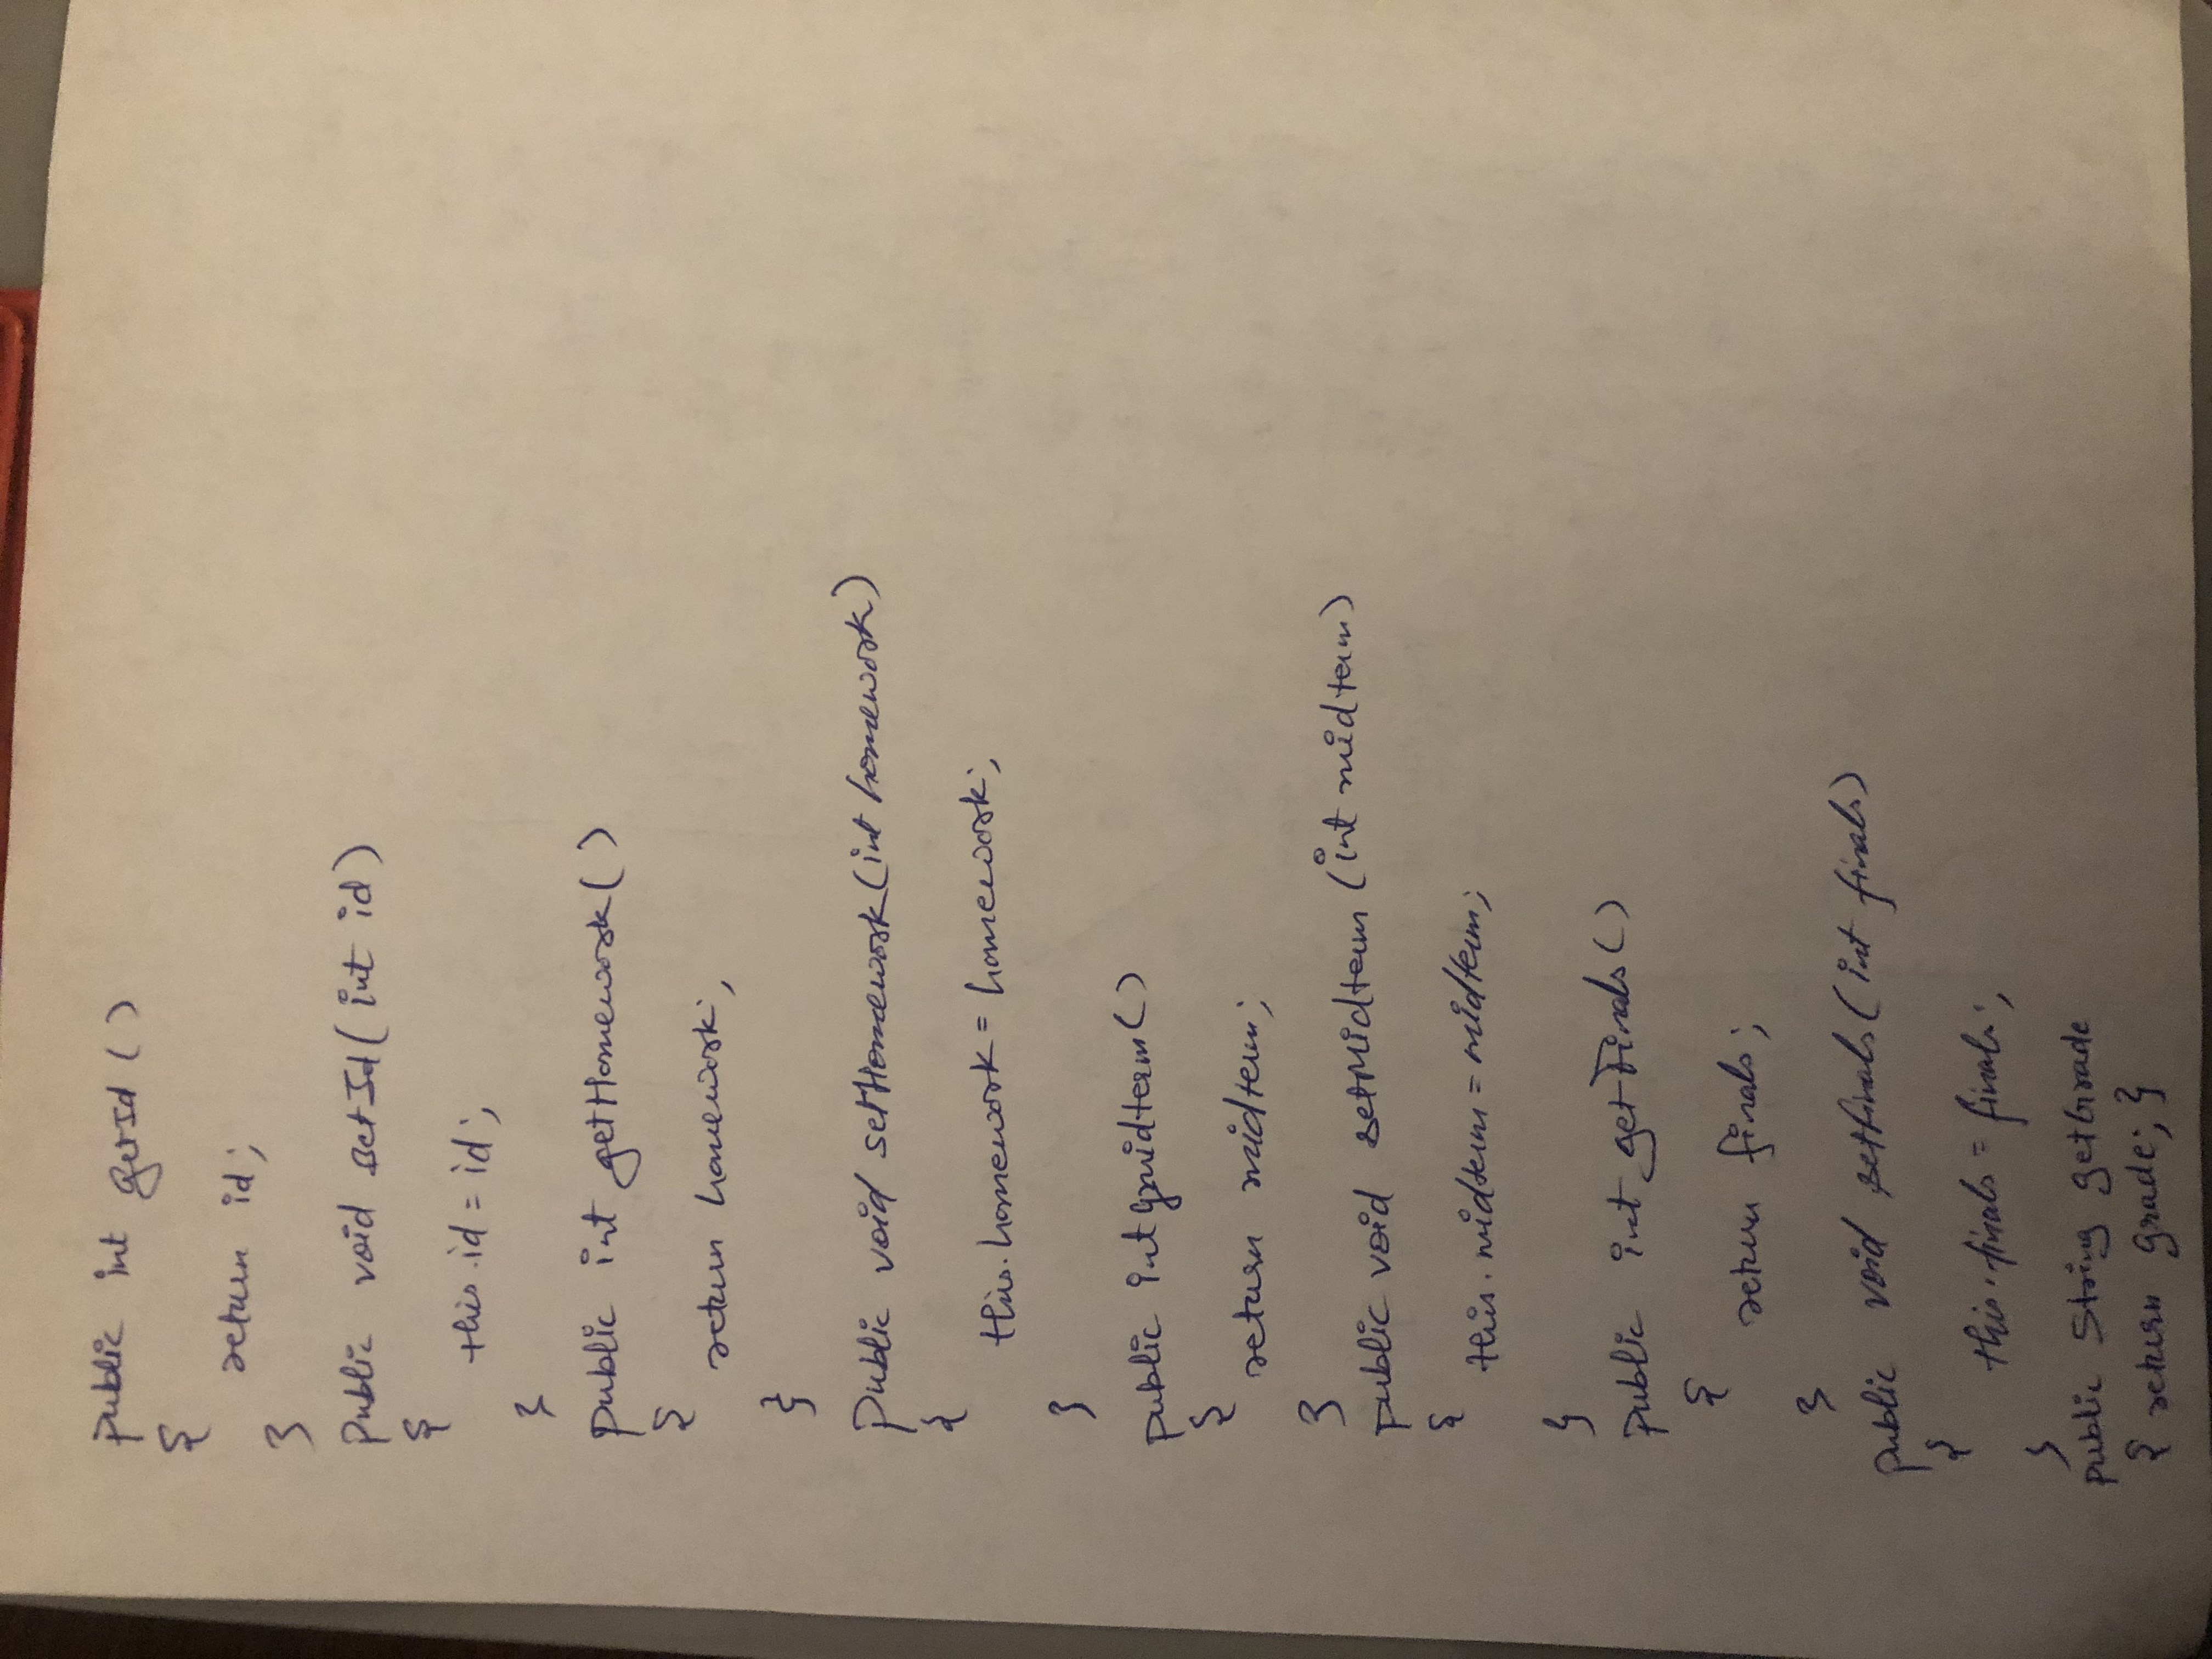 public int getId ()
{
return id;
}
public void setId (int id)
{
this.id = id;
}
public int getHomework ( )
{
return homework;
}
public void setHomework (int homework)
{
this.homework = homework;
}
public int gmidterm ()
{
return midterm;
}
public void setMidterm (int midterm)
{
this.midterm = midterm;
}
public int getFinals ()
{
return finals;
}
public void setfinals (int finals)
{
this.finals = finals;
}
public String getGrade
{ return grade; }